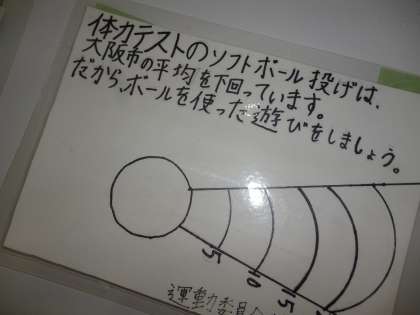 体力テストのソフトボール投げは、
大阪市の平均を下回っています。
だから、ボールを使った遊びをしましょう。
5
10
15
運動委員会